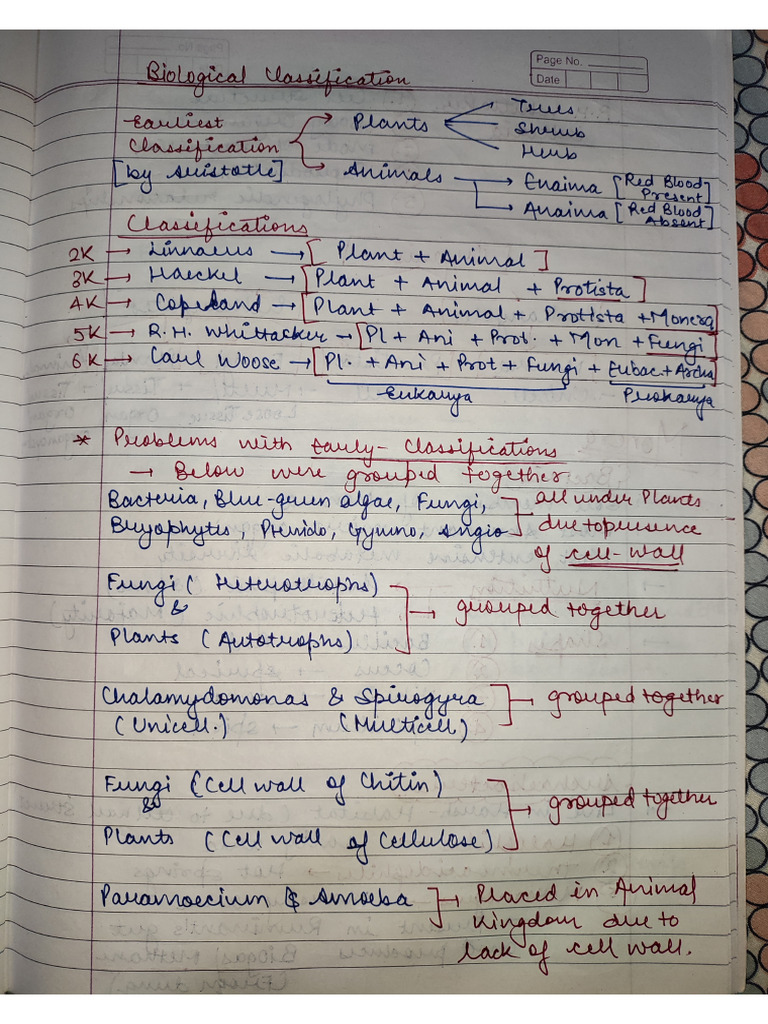 Page No.
Date
Biological Classification
Earliest Classification [by Aristotle] → Plants → Trees
Shrub
Herb
→ Animals → Enaima [Red Blood Present]
→ Anaima [Red Blood Absent]
Classifications
2K → Linnaeus → [Plant + Animal]
3K → Haeckel → [Plant + Animal + Protista]
4K → Copeland → [Plant + Animal + Protista + Monera]
5K → R.H. Whittacker → [Pl + Ani + Prot. + Mon + Fungi]
6K → Caul Woose → [Pl. + Ani + Prot + Fungi + Eubac + Archa]
Eukarya Prokarya
* Problems with Early-Classifications
→ Below were grouped together
Bacteria, Blue-green algae, Fungi, all under Plants
Bryophytes, Pterido, Gymno, Angio → due to presence
of cell-wall
Fungi (Heterotrophs)
& → grouped together
Plants (Autotrophs)
Chalamydomonas & Spirogyra → grouped together
(Unicell.) (Multicell)
Fungi (Cell wall of Chitin)
& → grouped together
Plants (Cell wall of Cellulose)
Paramoecium & Amoeba → Placed in Animal
Kingdom due to
lack of cell wall.